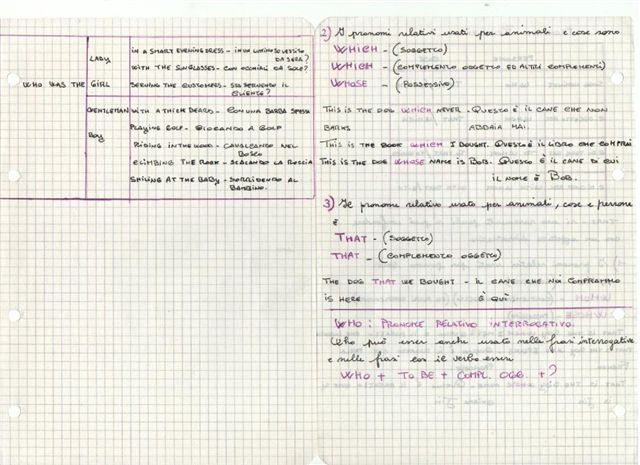 WHO WAS THE
LADY
IN A SMART EVENING DRESS - IN UN LUMINOSO VESTITO
DA SERA?
WITH THE SUNGLASSES - CON OCCHIALI DA SOLE?
GIRL
SERVING THE CUSTOMERS - SERVENDO IL
CLIENTE?
GENTLEMAN
WITH A THICK BEARD - CON UNA BARBA SPESSA
PLAYING GOLF - GIOCANDO A GOLF
BOY
RIDING IN THE WOOD - CAVALCANDO NEL
BOSCO
CLIMBING THE ROCK - SCALANDO LA ROCCIA
SMILING AT THE BABY - SORRIDENDO AL
BAMBINO.
2) I pronomi relativi usati per animali e cose sono
WHICH - (SOGGETTO)
WHICH - (COMPLEMENTO OGGETTO ED ALTRI COMPLEMENTI)
WHOSE - (POSSESSIVO)
THIS IS THE DOG WHICH NEVER - QUESTO È IL CANE CHE NON
BARKS ABBAIA MAI.
THIS IS THE BOOK WHICH I BOUGHT. QUESTO È IL LIBRO CHE COMPRAI
THIS IS THE DOG WHOSE NAME IS BOB. QUESTO È IL CANE DI CUI
IL NOME È BOB.
3) Il pronome relativo usato per animali, cose e persone
è
THAT - (SOGGETTO)
THAT - (COMPLEMENTO OGGETTO)
THE DOG THAT WE BOUGHT - IL CANE CHE NOI COMPRAMMO
IS HERE È QUÌ
WHO: PRONOME RELATIVO INTERROGATIVO.
Who può esser anche usato nelle frasi interrogative
e nelle frasi con il verbo essere
WHO + TO BE + COMPL. OGG. + ?